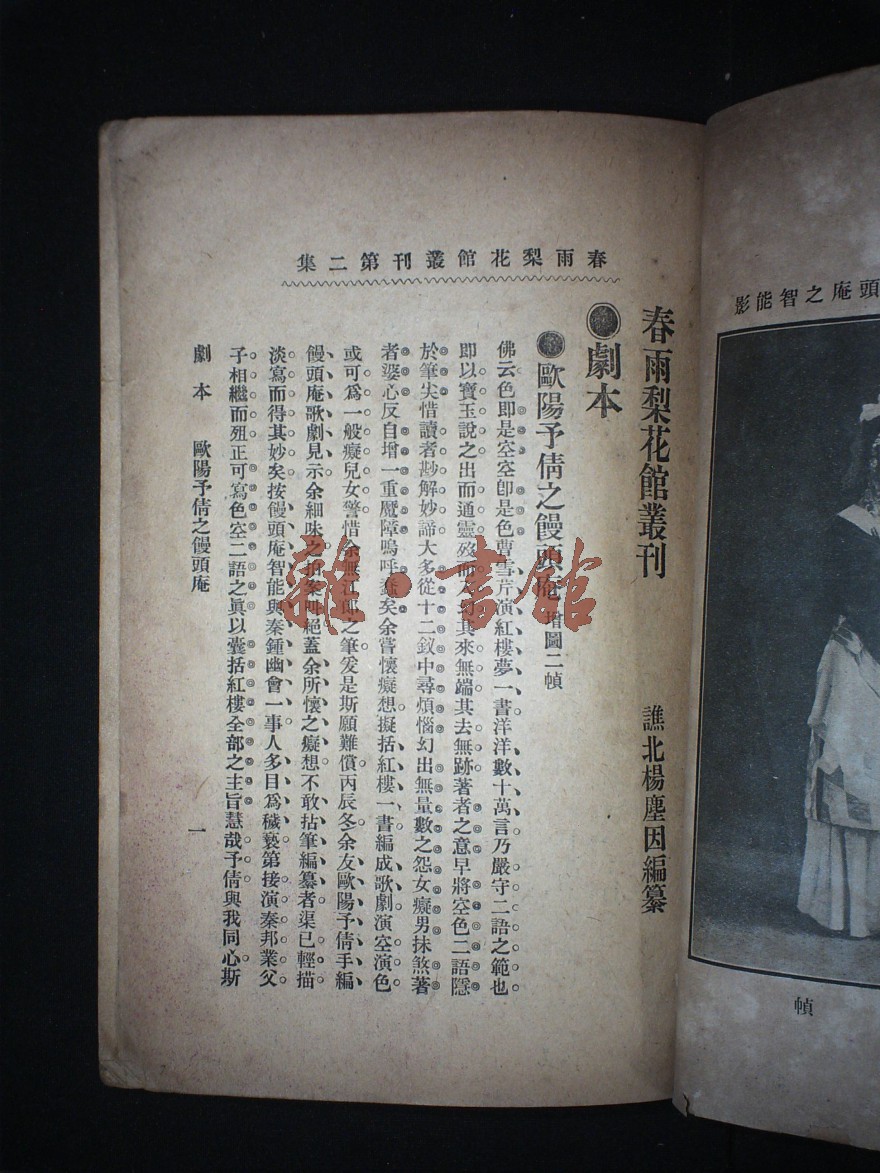 頭庵之智能影
幀
春雨梨花館叢刊第二集
春雨梨花館叢刊 譙北楊塵因編纂
劇本
歐陽予倩之饅頭庵 增圖二幀
佛云色即是空空即是色曹雪芹演紅樓夢一書洋洋數十萬言乃嚴守二語之範也
即以寶玉說之出而通靈歿而入其來無端其去無跡著者之意早將空色二語隱
於筆尖惜讀者尠解妙諦大多從十二釵中尋煩惱幻出無量數之怨女癡男抹煞著
者婆心反自增一重魔障嗚呼蠢矣余嘗懷癡想擬括紅樓一書編成歌劇演空演色
或可爲一般癡兒女警惜余無江郎之筆爰是斯願難償丙辰冬余友歐陽予倩手編
饅頭庵歌劇見示余細味之拍案叫絕蓋余所懷之癡想不敢拈筆編纂者渠已輕描
淡寫而得其妙矣按饅頭庵智能與秦鍾幽會一事人多目爲穢褻第接演秦邦業父
子相繼而殂正可寫色空二語之眞以囊括紅樓全部之主旨慧哉予倩與我同心斯
劇本 歐陽予倩之饅頭庵 一
雜·書館